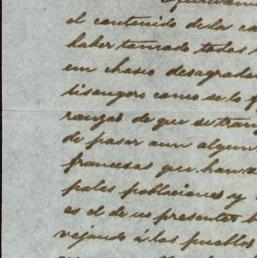 el contenido de la ca
haber tomado todas
un chasco desagrada
lisongero como se lo f
ranzas de que se tran
de pasar aun algun
francesas que han
pales poblaciones y
es el de us presentes
vejando á los pueblos